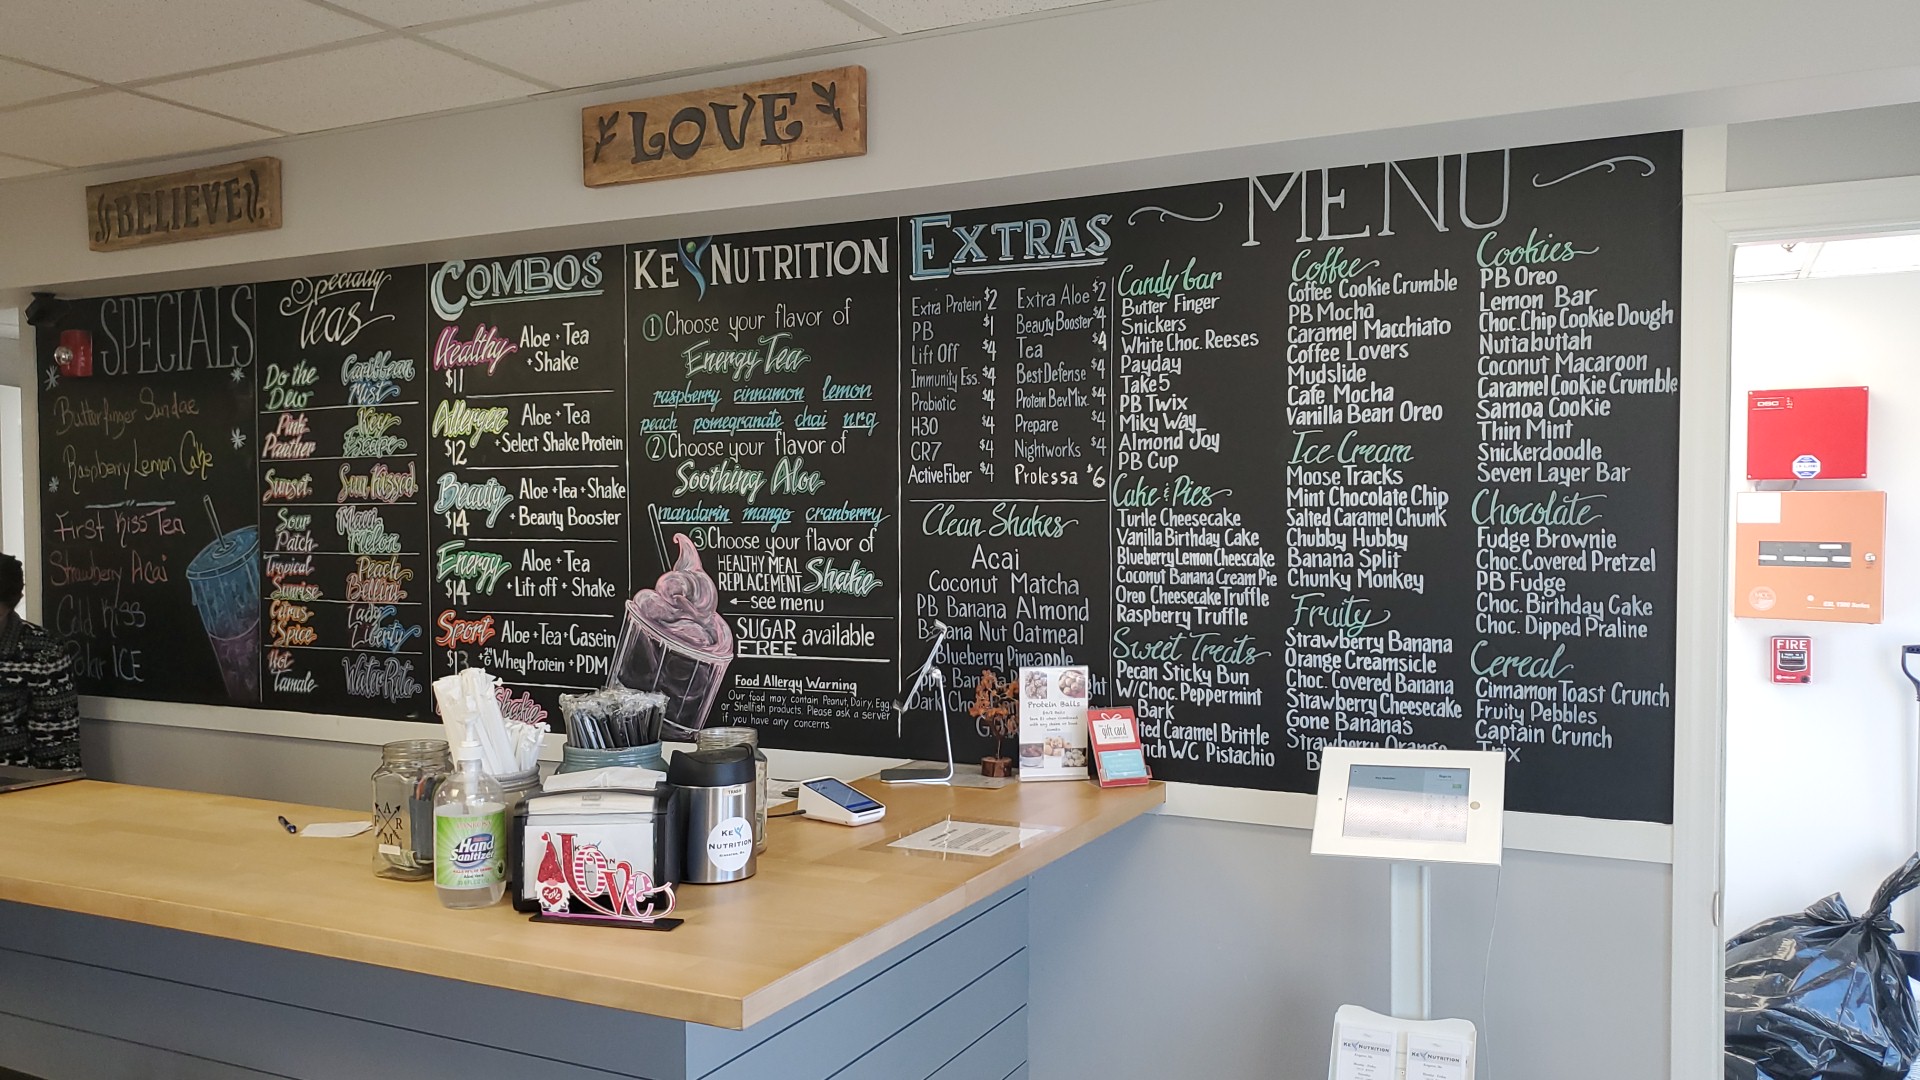 BELIEVE
LOVE
SPECIALS
Butterfinger Sundae
Raspberry Lemon Cake
First Kiss Tea
Strawberry Acai
Cold Kiss
Polar ICE
Specialty
Teas
Do the
Dew
Caribbean
Mist
Pink
Panther
Key
Escape
Sunset
Sun Kissed
Sour
Patch
Maui
Melon
Tropical
Sunrise
Peach
Bellini
Citrus
& Spice
Lady
Liberty
Hot
Tamale
COMBOS
Healthy
$11
Aloe + Tea
+ Shake
Allergen
$12
Aloe + Tea
+ Select Shake Protein
Beauty
$14
Aloe + Tea + Shake
+ Beauty Booster
Energy
$14
Aloe + Tea
+ Lift off + Shake
Sport
$13
Aloe + Tea + Casein
+ 24G Whey Protein + PDM
Shake
KEY NUTRITION
① Choose your flavor of
Energy Tea
raspberry cinnamon lemon
peach pomegranate chai nrg
② Choose your flavor of
Soothing Aloe
mandarin mango cranberry
③ Choose your flavor of
HEALTHY MEAL
REPLACEMENT Shake
see menu
SUGAR
FREE available
Food Allergy Warning
Our food may contain Peanut, Dairy, Egg,
or Shellfish products. Please ask a server
if you have any concerns.
EXTRAS
Extra Protein $2
PB $1
Lift Off $4
Immunity Ess. $4
Probiotic $4
H30 $4
CR7 $4
Active Fiber $4
Extra Aloe $2
Beauty Booster $4
Tea $4
Best Defense $4
Protein Bev Mix $4
Prepare $4
Nightworks $4
Prolessa $6
Clean Shakes
Acai
Coconut Matcha
PB Banana Almond
Banana Nut Oatmeal
Blueberry Pineapple
MENU
Candy bar
Butter Finger
Snickers
White Choc. Reeses
Payday
Take 5
PB Twix
Miky Way
Almond Joy
PB Cup
Cake & Pies
Turtle Cheesecake
Vanilla Birthday Cake
Blueberry Lemon Cheescake
Coconut Banana Cream Pie
Oreo Cheesecake Truffle
Raspberry Truffle
Sweet Treats
Pecan Sticky Bun
W/Choc. Peppermint
Bark
ted Caramel Brittle
nch WC Pistachio
Coffee
Coffee Cookie Crumble
PB Mocha
Caramel Macchiato
Coffee Lovers
Mudslide
Cafe Mocha
Vanilla Bean Oreo
Ice Cream
Moose Tracks
Mint Chocolate Chip
Salted Caramel Chunk
Chubby Hubby
Banana Split
Chunky Monkey
Fruity
Strawberry Banana
Orange Creamsicle
Choc. Covered Banana
Strawberry Cheesecake
Gone Banana's
Strawberry Orange
Cookies
PB Oreo
Lemon Bar
Choc. Chip Cookie Dough
Nuttabuttah
Coconut Macaroon
Caramel Cookie Crumble
Samoa Cookie
Thin Mint
Snickerdoodle
Seven Layer Bar
Chocolate
Fudge Brownie
Choc. Covered Pretzel
PB Fudge
Choc. Birthday Cake
Choc. Dipped Praline
Cereal
Cinnamon Toast Crunch
Fruity Pebbles
Captain Crunch
Trix
Protein Balls
gift card
FARM
Hand
Sanitizer
Love
KEY
NUTRITION
FIRE
KEY NUTRITION
KEY NUTRITION